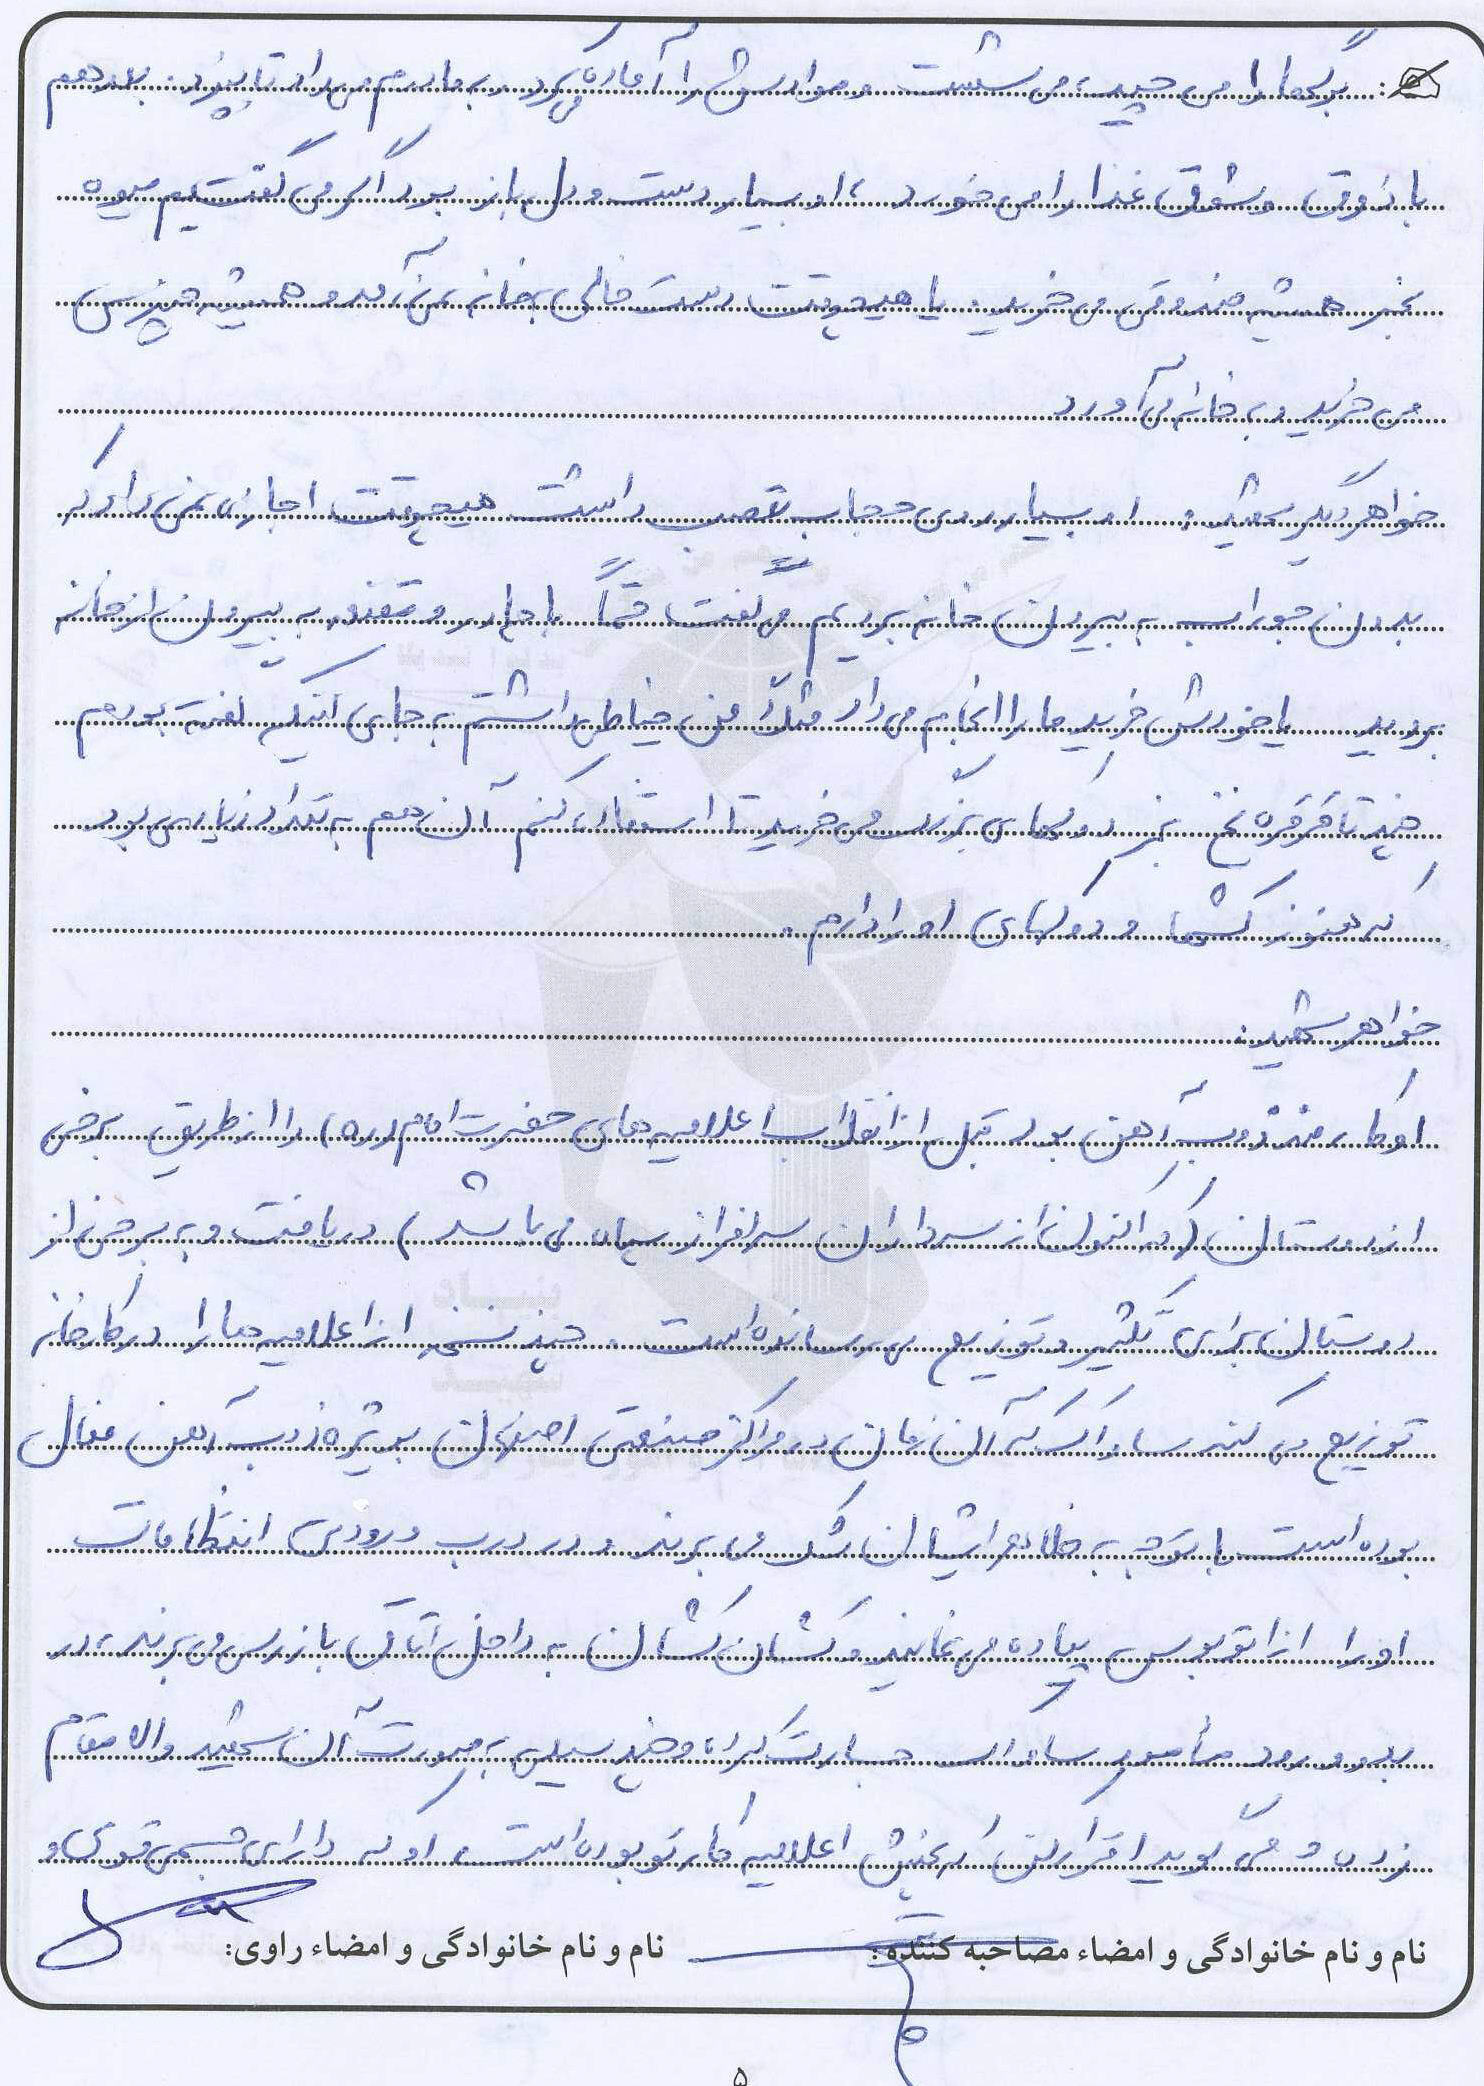 برگها را می چید، می شست و موادش را آماده می کرد به مادرم می داد تا بپزد. بعد هم
با ذوق و شوق غذا را می خورد، او بسیار دست و دل باز بود اگر می گفتیم میوه
بخر همیشه صندوقی می خرید. یا هیچوقت دست خالی به خانه نمی آمد و همیشه چیزی
می خرید و به خانه می آورد
خواهر دیگر شهید: او بسیار روی حجاب تعصب داشت هیچوقت اجازه نمی داد که
بدون جوراب به بیرون خانه برویم می گفت حتماً با چادر و مقنعه به بیرون از خانه
بروید یا خودش خرید ما را انجام می داد مثلاً من خیاطی داشتم به جای اینکه گفته بودم
چند تا قرقره نخ بخر دوکهای بزرگ می خرید تا استفاده کنم آن هم به تعداد زیاد می بود
که هنوز کشها و دوکهای او را دارم.
خواهر شهید:
او کارمند ذوب آهن بود قبل از انقلاب اعلامیه های حضرت امام (ره) را از طریق برخی
از دوستان (که اکنون از سرداران سرافراز سپاه می باشد) دریافت و به برخی از
دوستان برای تکثیر و توزیع می رسانده است. چند نسخه از اعلامیه ها را در کارخانه
توزیع می کند ساواک که آن زمان در مراکز صنعتی اصفهان بویژه ذوب آهن فعال
بوده است با توجه به ظاهر ایشان شک می برند و در درب ورودی انتظامات
او را از اتوبوس پیاده می نمایند و کشان کشان به داخل اتاق بازرسی می برند، در
بدو ورود مأمور ساواک جسارت کرده و چند سیلی به صورت آن شهید والا مقام
زده و می گوید اقرار کن که پخش اعلامیه کار تو بوده است، او که دارای جسمی قوی و
نام و نام خانوادگی و امضاء مصاحبه کننده: نام و نام خانوادگی و امضاء راوی:
۵